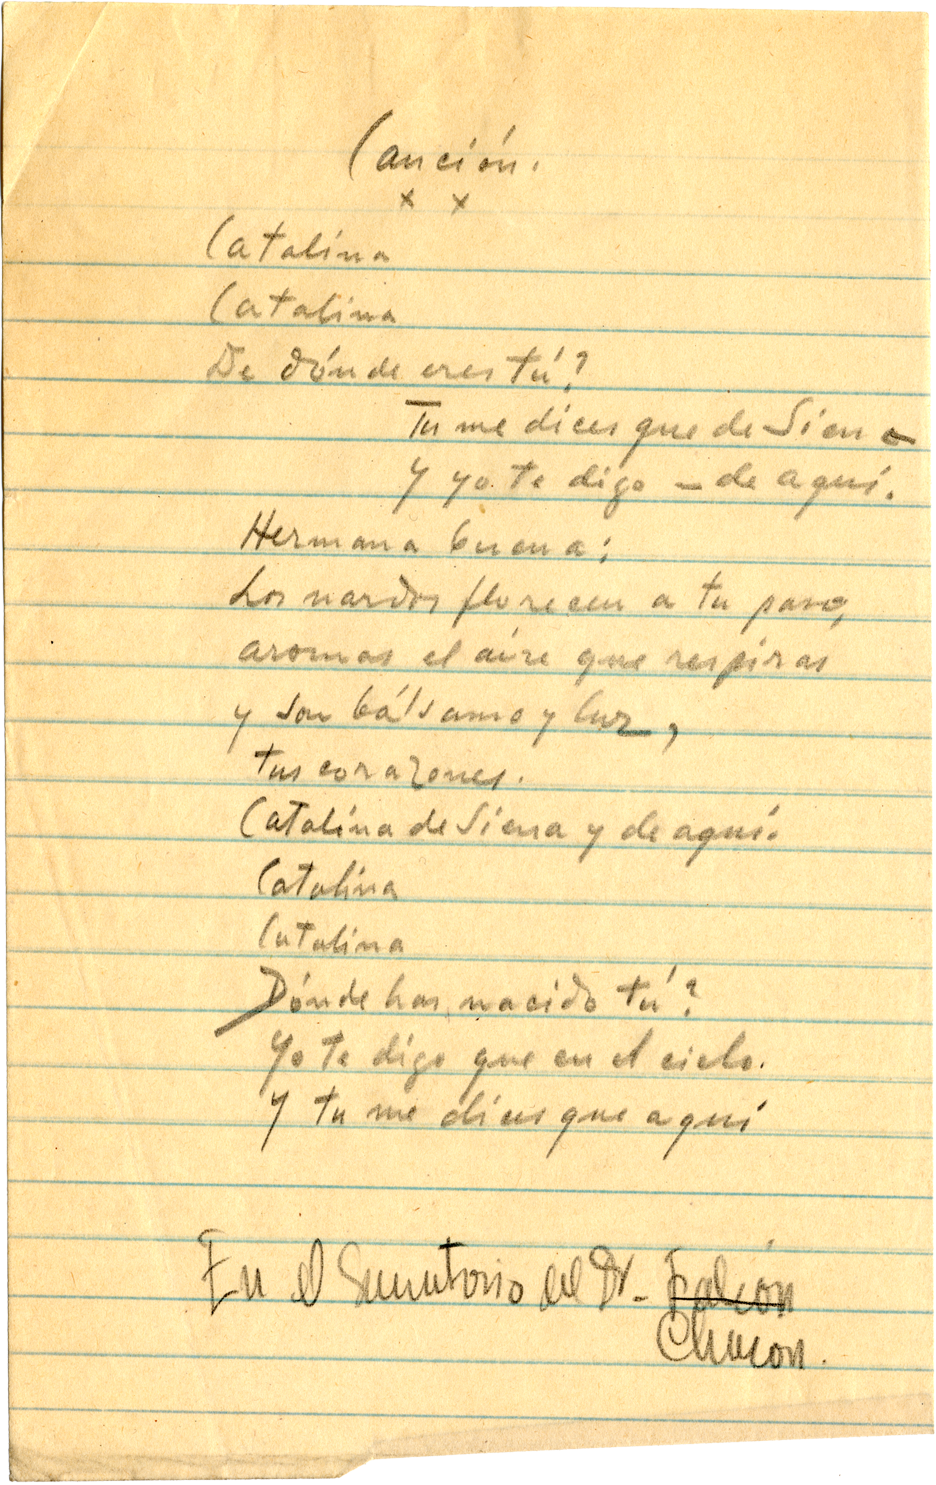 Canción.
x x
Catalina
Catalina
De dónde eres tú?
Tu me dices que de Siena
Y yo te digo - de aquí.
Hermana buena;
Los nardos florecen a tu paso,
aromas el aire que respiras
y son bálsamo y luz,
tus corazones.
Catalina de Siena y de aquí.
Catalina
Catalina
Dónde has nacido tú?
Yo te digo que en el cielo.
Y tu me dices que aquí
En el Sanatorio del Dr. Falcón
Chacon.